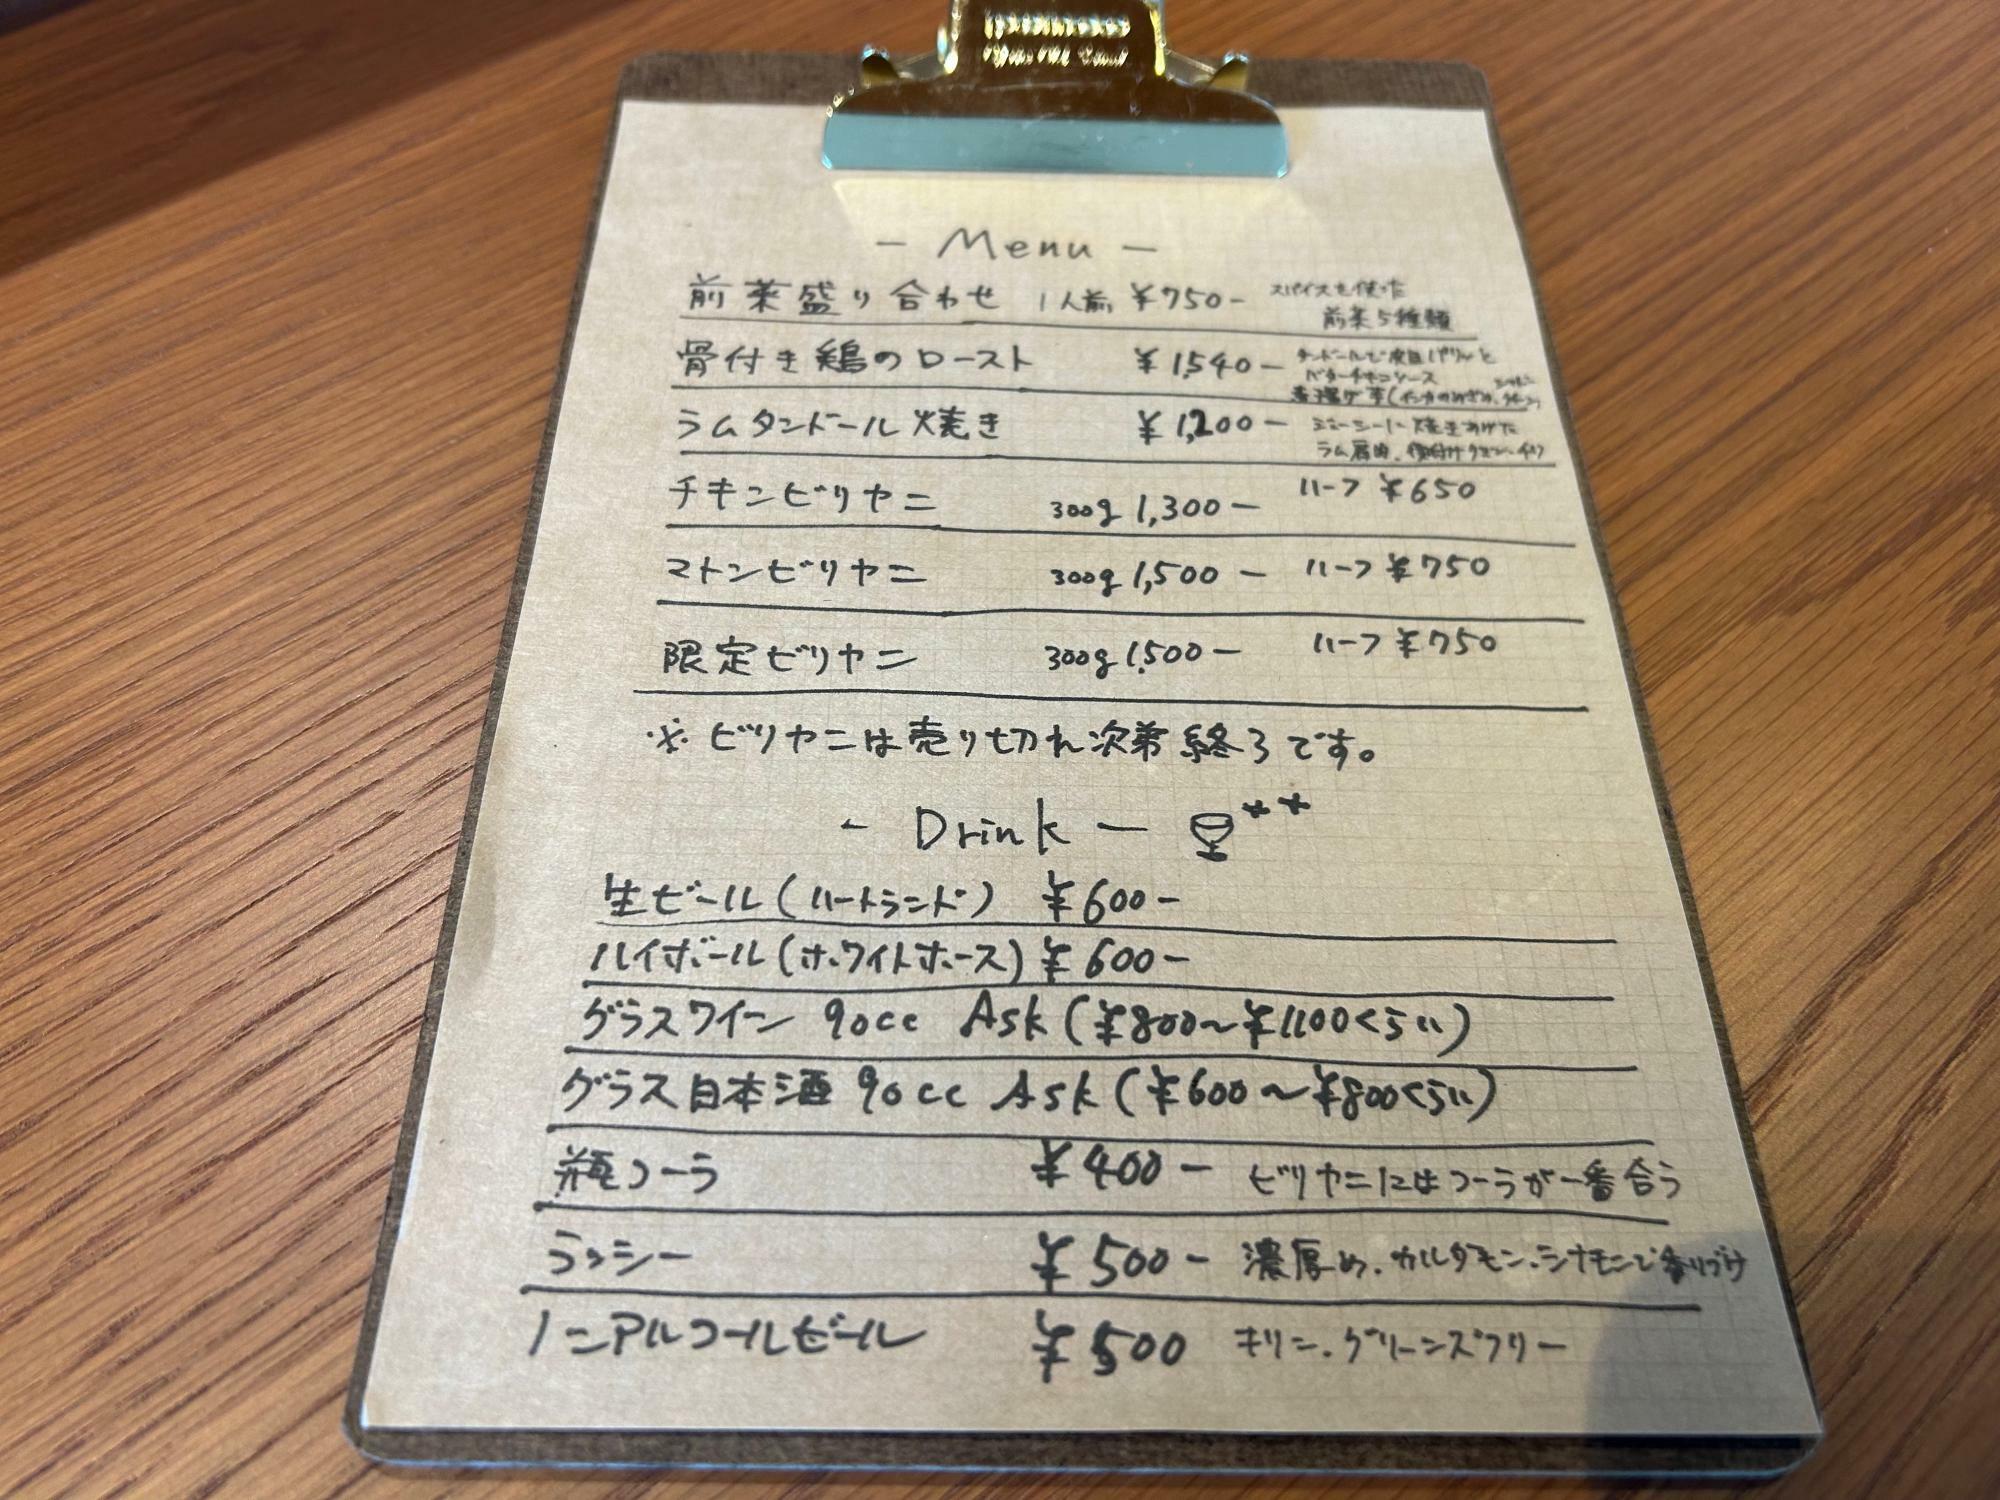 - Menu -
前菜盛り合わせ 1人前 ¥750- スパイスを使った
前菜5種類
骨付き鶏のロースト ¥1,540- タンドールで皮目パリッと
バターチキンソース
素揚げ芋(インカのめざめ、
ラムタンドール焼き ¥1,200- ジューシーに焼きあげた
ラム肩肉、
チキンビリヤニ 300g 1,300- ハーフ ¥650
マトンビリヤニ 300g 1,500- ハーフ ¥750
限定ビリヤニ 300g 1,500- ハーフ ¥750
※ビリヤニは売り切れ次第終了です。
- Drink -
生ビール(ハートランド) ¥600-
ハイボール(ホワイトホース) ¥600-
グラスワイン 90cc Ask (¥800〜¥1100くらい)
グラス日本酒 90cc Ask (¥600〜¥800くらい)
瓶コーラ ¥400- ビリヤニにはコーラが一番合う
ラッシー ¥500- 濃厚め、カルダモン、シナモンで香りづけ
ノンアルコールビール ¥500 キリン、グリーンズフリー